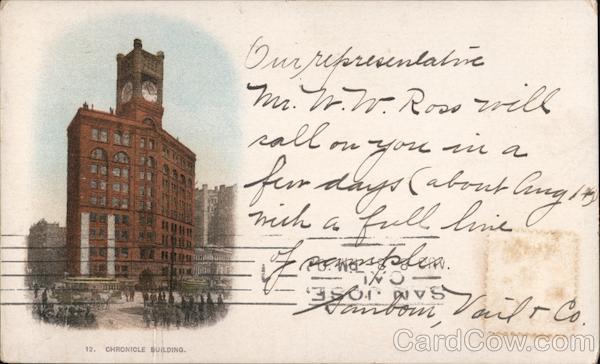 Our representative
Mr. W. W. Ross will
call on you in a
few days (about Aug 14)
with a full line
of samples.
Sanborn, Vail & Co.
SAN JOSE,
CAL
12. CHRONICLE BUILDING.
CardCow.com